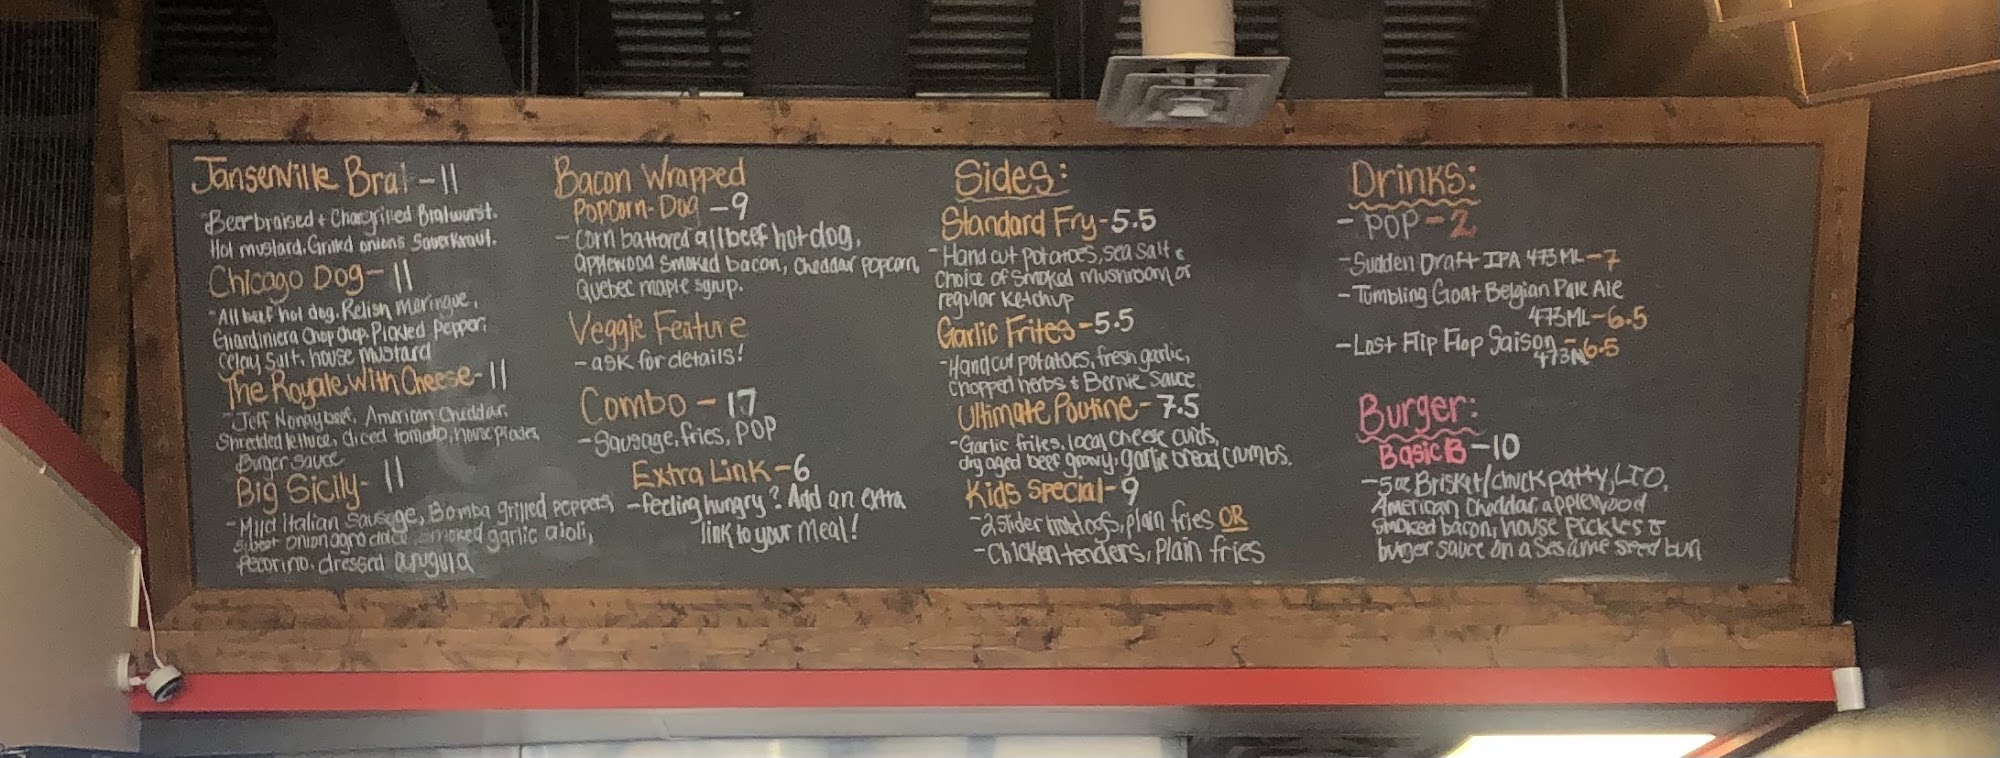 Jansenville Brat - 11
Beer braised + Chargrilled Bratwurst.
Hot mustard. Grilled onions Sauerkraut.
Chicago Dog - 11
- All beef hot dog. Relish Meringue,
Giardiniera Chop Chop, Pickled Pepper,
Celery Salt, house mustard
The Royale With Cheese - 11
- Jeff Nonay beef, American Cheddar,
Shredded lettuce, diced tomato, house pickles,
Burger sauce
Big Sicily - 11
- Mild Italian Sausage, Bomba grilled peppers,
sweet onion agro dolce, smoked garlic aioli,
Pecorino. dressed arugula
Bacon Wrapped
Popcorn-Dog - 9
- Corn battered all beef hot dog,
applewood smoked bacon, Cheddar popcorn,
Quebec maple syrup.
Veggie Feature
- ask for details!
Combo - 17
- Sausage, fries, POP
Extra Link - 6
- Feeling hungry? Add an extra
link to your meal!
Sides:
Standard Fry - 5.5
- Hand cut potatoes, sea salt &
Choice of Smoked mushroom or
regular Ketchup
Garlic Frites - 5.5
- Hand cut potatoes, fresh garlic,
chopped herbs & Bernie Sauce
Ultimate Poutine - 7.5
- Garlic frites, local cheese curds,
dry aged beef gravy. garlic bread crumbs.
Kids Special - 9
- 2 slider hotdogs, plain fries OR
- Chicken tenders, Plain fries
Drinks:
- POP - 2
- Sudden Draft IPA 473 ML - 7
- Tumbling Goat Belgian Pale Ale
473ML - 6.5
- Last Flip Flop Saison - 6.5
473ML
Burger:
Basic B - 10
- 5oz Brisket/chuck patty, LTO,
American Cheddar, applewood
smoked bacon, house pickles &
burger sauce on a sesame seed bun